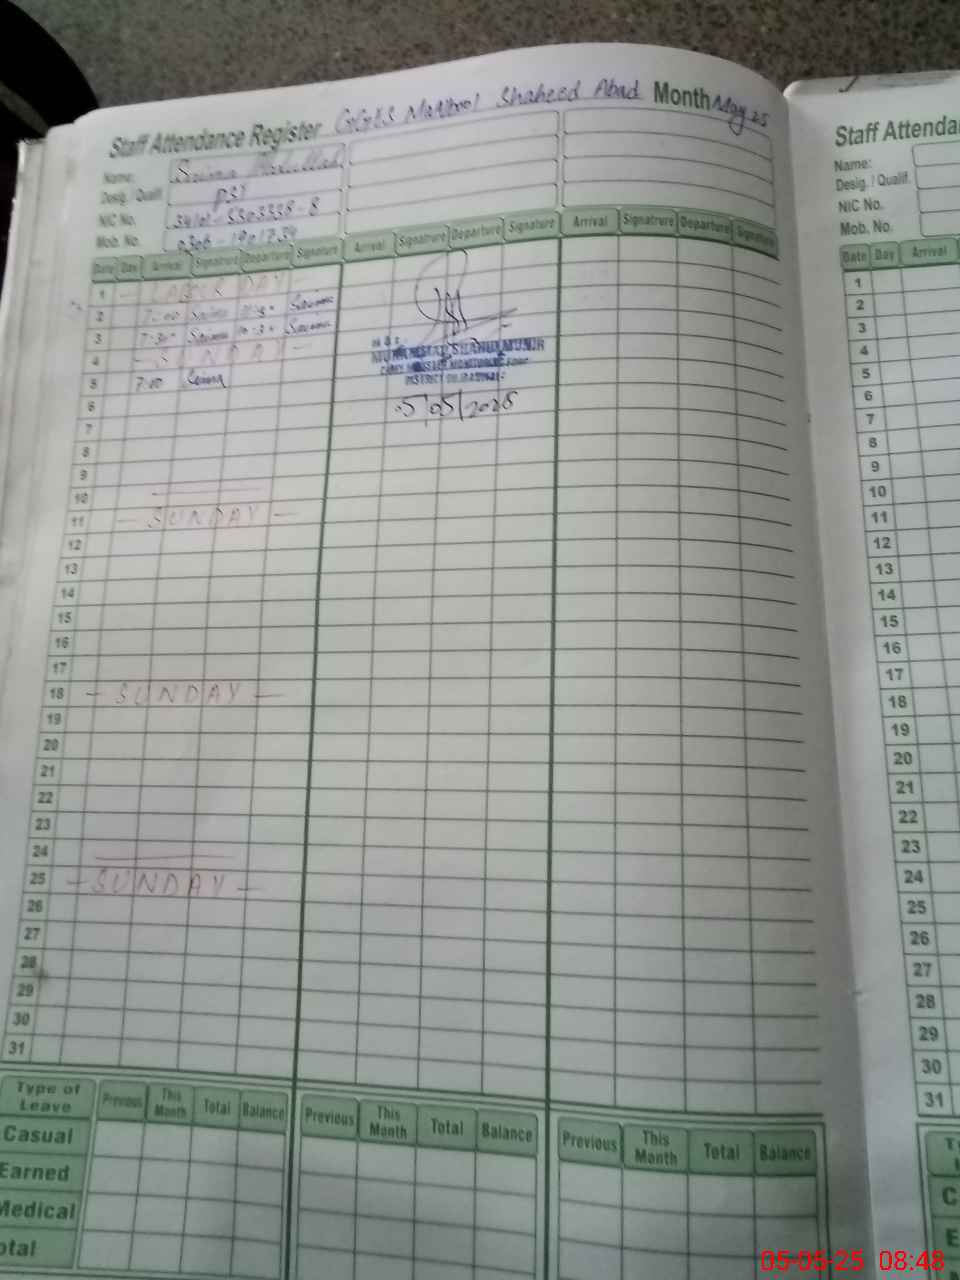 Staff Attendance Register GGES Shaheed Abad Month May 25
Name: Saima
Desig. / Qualif. PST
NIC No. 34101-5303338-8
Mob. No. 0306-1901734
Date Day Arrival Signatrure Departure Signature Arrival Signatrure Departure Signature Arrival Signatrure Departure Signature
1 - LABOUR DAY -
2 7:00 Saima Saima
3 7:30 Saima Saima
4 - SUNDAY -
5 7:00 Saima
MUHAMMAD SHAHID MUNIR
CHIEF MINISTER MONITORING FORCE
DISTRICT
05/05/2025
6
7
8
9
10
11 - SUNDAY -
12
13
14
15
16
17
18 - SUNDAY -
19
20
21
22
23
24
25 - SUNDAY -
26
27
28
29
30
31
Type of Leave Previous This Month Total Balance Previous This Month Total Balance Previous This Month Total Balance
Casual
Earned
Medical
otal
Staff Attenda
Name:
Desig. / Qualif.
NIC No.
Mob. No.
Date Day Arrival
1
2
3
4
5
6
7
8
9
10
11
12
13
14
15
16
17
18
19
20
21
22
23
24
25
26
27
28
29
30
31
05-05-25 08:48